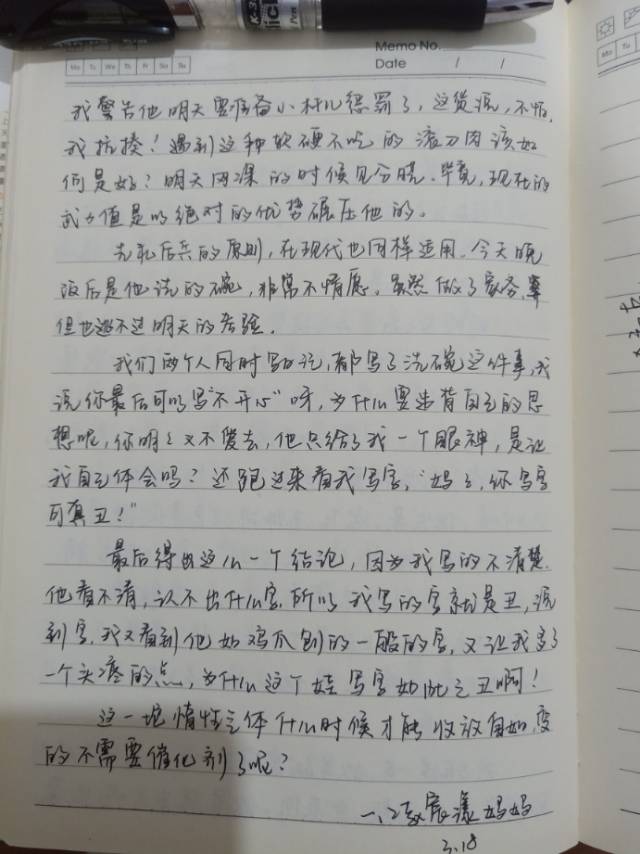 Memo No.
Mo Tu We Th Fr Sa Su
Date / /
我警告他明天要准备小木几惩罚了,这货说,不怕,
我抗揍!遇到这种软硬不吃的滚刀肉该如
何是好?明天网课的时候见分晓.毕竟,现在的
武力值是以绝对的优势碾压他的。
先礼后兵的原则,在现代也同样适用.今天晚
饭后是他洗的碗,非常不情愿.虽然做了家务事
但也逃不过明天的考验.
我们两个人同时写日记,都写了洗碗这件事,我
说你最后可以写"不开心"呀,为什么要违背自己的思
想呢,你明明又不愿去,他只给了我一个眼神,是让
我自己体会吗?还跑过来看我写字,"妈妈,你写字
可真丑!"
最后得出这么一个结论,因为我写的不清楚.
他看不清,认不出什么字.所以我写的字就是丑,说
到字.我又看到他如鸡爪刨的一般的字,又让我多了
一个头疼的点,为什么这个娃写字如此之丑啊!
这一坨惰性气体什么时候才能收放自如,变
的不需要催化剂了呢?
宸漾妈妈
3.18